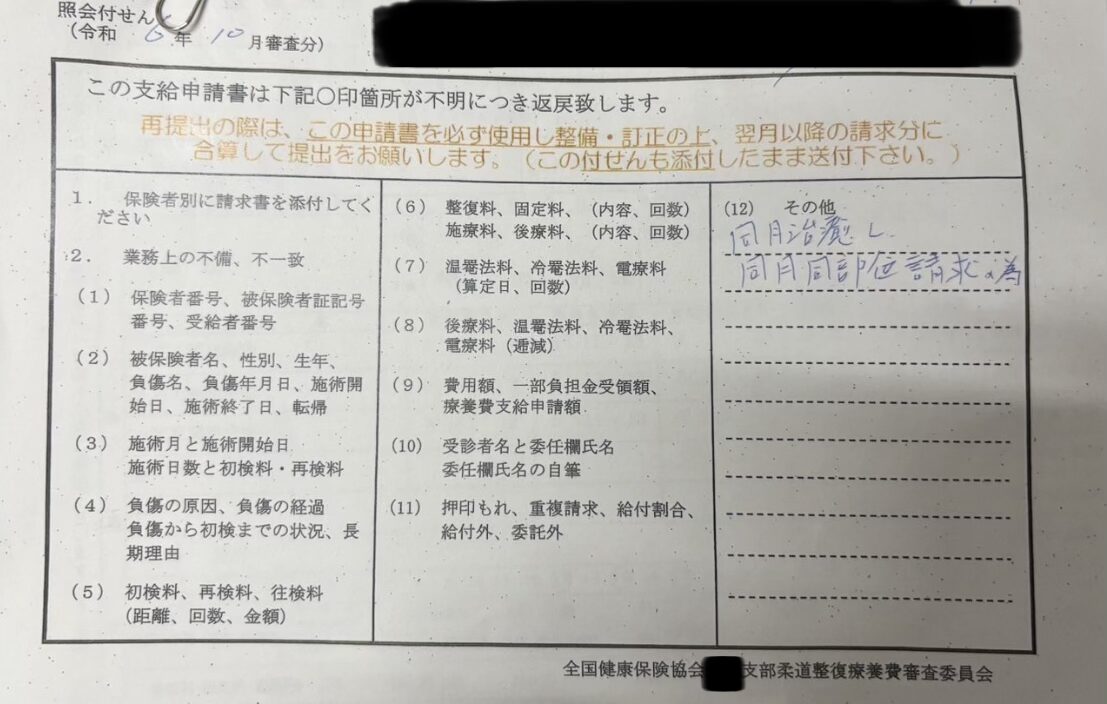 照会付せん
(令和 6 年 10 月審査分)
この支給申請書は下記○印箇所が不明につき返戻致します。
再提出の際は、この申請書を必ず使用し整備・訂正の上、翌月以降の請求分に
合算して提出をお願いします。(この付せんも添付したまま送付下さい。)
1. 保険者別に請求書を添付してく
ださい
2. 業務上の不備、不一致
(1) 保険者番号、被保険者証記号
番号、受給者番号
(2) 被保険者名、性別、生年、
負傷名、負傷年月日、施術開
始日、施術終了日、転帰
(3) 施術月と施術開始日
施術日数と初検料・再検料
(4) 負傷の原因、負傷の経過
負傷から初検までの状況、長
期理由
(5) 初検料、再検料、往検料
(距離、回数、金額)
(6) 整復料、固定料、(内容、回数)
施療料、後療料、(内容、回数)
(7) 温罨法料、冷罨法料、電療料
(算定日、回数)
(8) 後療料、温罨法料、冷罨法料、
電療料(逓減)
(9) 費用額、一部負担金受領額、
療養費支給申請額
(10) 受診者名と委任欄氏名
委任欄氏名の自筆
(11) 押印もれ、重複請求、給付割合、
給付外、委託外
(12) その他
同月治癒し
同月同部位請求の為
全国健康保険協会 支部柔道整復療養費審査委員会